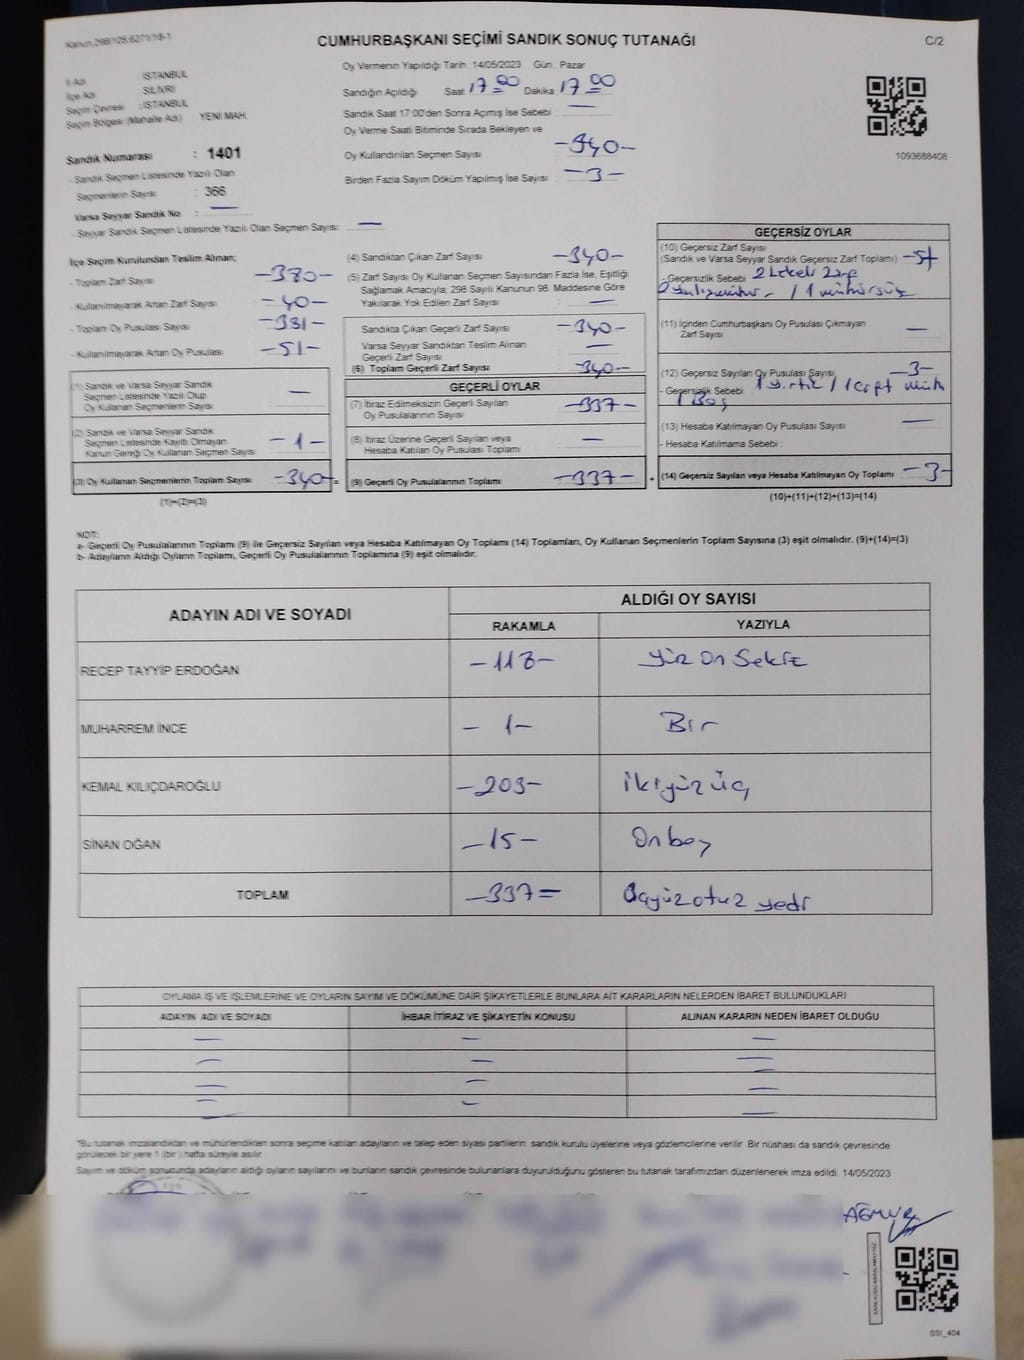 Kanun 298/105,6271/18-1
CUMHURBAŞKANI SEÇİMİ SANDIK SONUÇ TUTANAĞI
C/2
İl Adı : İSTANBUL
İlçe Adı : SİLİVRİ
Seçim Çevresi : İSTANBUL
Seçim Bölgesi (Mahalle Adı) YENİ MAH.
Sandık Numarası : 1401
- Sandık Seçmen Listesinde Yazılı Olan
Seçmenlerin Sayısı : 366
Varsa Seyyar Sandık No : —
- Seyyar Sandık Seçmen Listesinde Yazılı Olan Seçmen Sayısı: —
Oy Vermenin Yapıldığı Tarih :14/05/2023 Gün : Pazar
Sandığın Açıldığı Saat 17 00 Dakika 17 00
Sandık Saat 17:00'den Sonra Açılmış İse Sebebi : —
Oy Verme Saati Bitiminde Sırada Bekleyen ve
Oy Kullandırılan Seçmen Sayısı -340-
Birden Fazla Sayım Döküm Yapılmış İse Sayısı : -3-
1093688408
İlçe Seçim Kurulundan Teslim Alınan;
- Toplam Zarf Sayısı -380-
- Kullanılmayarak Artan Zarf Sayısı -40-
- Toplam Oy Pusulası Sayısı -391-
- Kullanılmayarak Artan Oy Pusulası -51-
(1) Sandık ve Varsa Seyyar Sandık
Seçmen Listesinde Yazılı Olup
Oy Kullanan Seçmenlerin Sayısı —
(2) Sandık ve Varsa Seyyar Sandık
Seçmen Listesinde Kayıtlı Olmayan
Kanun Gereği Oy Kullanan Seçmen Sayısı -1-
(3) Oy Kullanan Seçmenlerin Toplam Sayısı -340- =
(1)+(2)=(3)
(4) Sandıktan Çıkan Zarf Sayısı -340-
(5) Zarf Sayısı Oy Kullanan Seçmen Sayısından Fazla İse, Eşitliği
Sağlamak Amacıyla; 298 Sayılı Kanunun 98. Maddesine Göre
Yakılarak Yok Edilen Zarf Sayısı : —
Sandıkta Çıkan Geçerli Zarf Sayısı -340-
Varsa Seyyar Sandıktan Teslim Alınan
Geçerli Zarf Sayısı —
(6) Toplam Geçerli Zarf Sayısı -340-
GEÇERLİ OYLAR
(7) İtiraz Edilmeksizin Geçerli Sayılan
Oy Pusulalarının Sayısı -337-
(8) İtiraz Üzerine Geçerli Sayılan veya
Hesaba Katılan Oy Pusulası Toplamı —
(9) Geçerli Oy Pusulalarının Toplamı -337- +
GEÇERSİZ OYLAR
(10) Geçersiz Zarf Sayısı
(Sandık ve Varsa Seyyar Sandık Geçersiz Zarf Toplamı)
- Geçersizlik Sebebi
(11) İçinden Cumhurbaşkanı Oy Pusulası Çıkmayan
Zarf Sayısı —
(12) Geçersiz Sayılan Oy Pusulası Sayısı -3-
- Geçersizlik Sebebi 1 yırtık / 1 çift müh
1 Boş
(13) Hesaba Katılmayan Oy Pusulası Sayısı —
- Hesaba Katılmama Sebebi :
(14) Geçersiz Sayılan veya Hesaba Katılmayan Oy Toplamı -3-
(10)+(11)+(12)+(13)=(14)
NOT:
a- Geçerli Oy Pusulalarının Toplamı (9) ile Geçersiz Sayılan veya Hesaba Katılmayan Oy Toplamı (14) Toplamları, Oy Kullanan Seçmenlerin Toplam Sayısına (3) eşit olmalıdır. (9)+(14)=(3)
b- Adayların Aldığı Oyların Toplamı, Geçerli Oy Pusulalarının Toplamına (9) eşit olmalıdır.
ADAYIN ADI VE SOYADI ALDIĞI OY SAYISI
RAKAMLA YAZIYLA
RECEP TAYYİP ERDOĞAN -118- Yüz On Sekiz
MUHARREM İNCE - 1- Bir
KEMAL KILIÇDAROĞLU -203- ikiyüz üç
SİNAN OĞAN -15- Onbeş
TOPLAM -337= Üçyüz otuz yedi
OYLAMA İŞ VE İŞLEMLERİNE VE OYLARIN SAYIM VE DÖKÜMÜNE DAİR ŞİKAYETLERLE BUNLARA AİT KARARLARIN NELERDEN İBARET BULUNDUKLARI
ADAYIN ADI VE SOYADI İHBAR İTİRAZ VE ŞİKAYETİN KONUSU ALINAN KARARIN NEDEN İBARET OLDUĞU
*Bu tutanak imzalandıktan ve mühürlendikten sonra seçime katılan adayların ve talep eden siyasi partilerin sandık kurulu üyelerine veya gözlemcilerine verilir. Bir nüshası da sandık çevresinde
görülecek bir yere 1 (bir) hafta süreyle asılır.
Sayım ve döküm sonucunda adayların aldığı oyların sayılarını ve bunların sandık çevresinde bulunanlara duyurulduğunu gösteren bu tutanak tarafımızdan düzenlenerek imza edildi. 14/05/2023
SSI_404